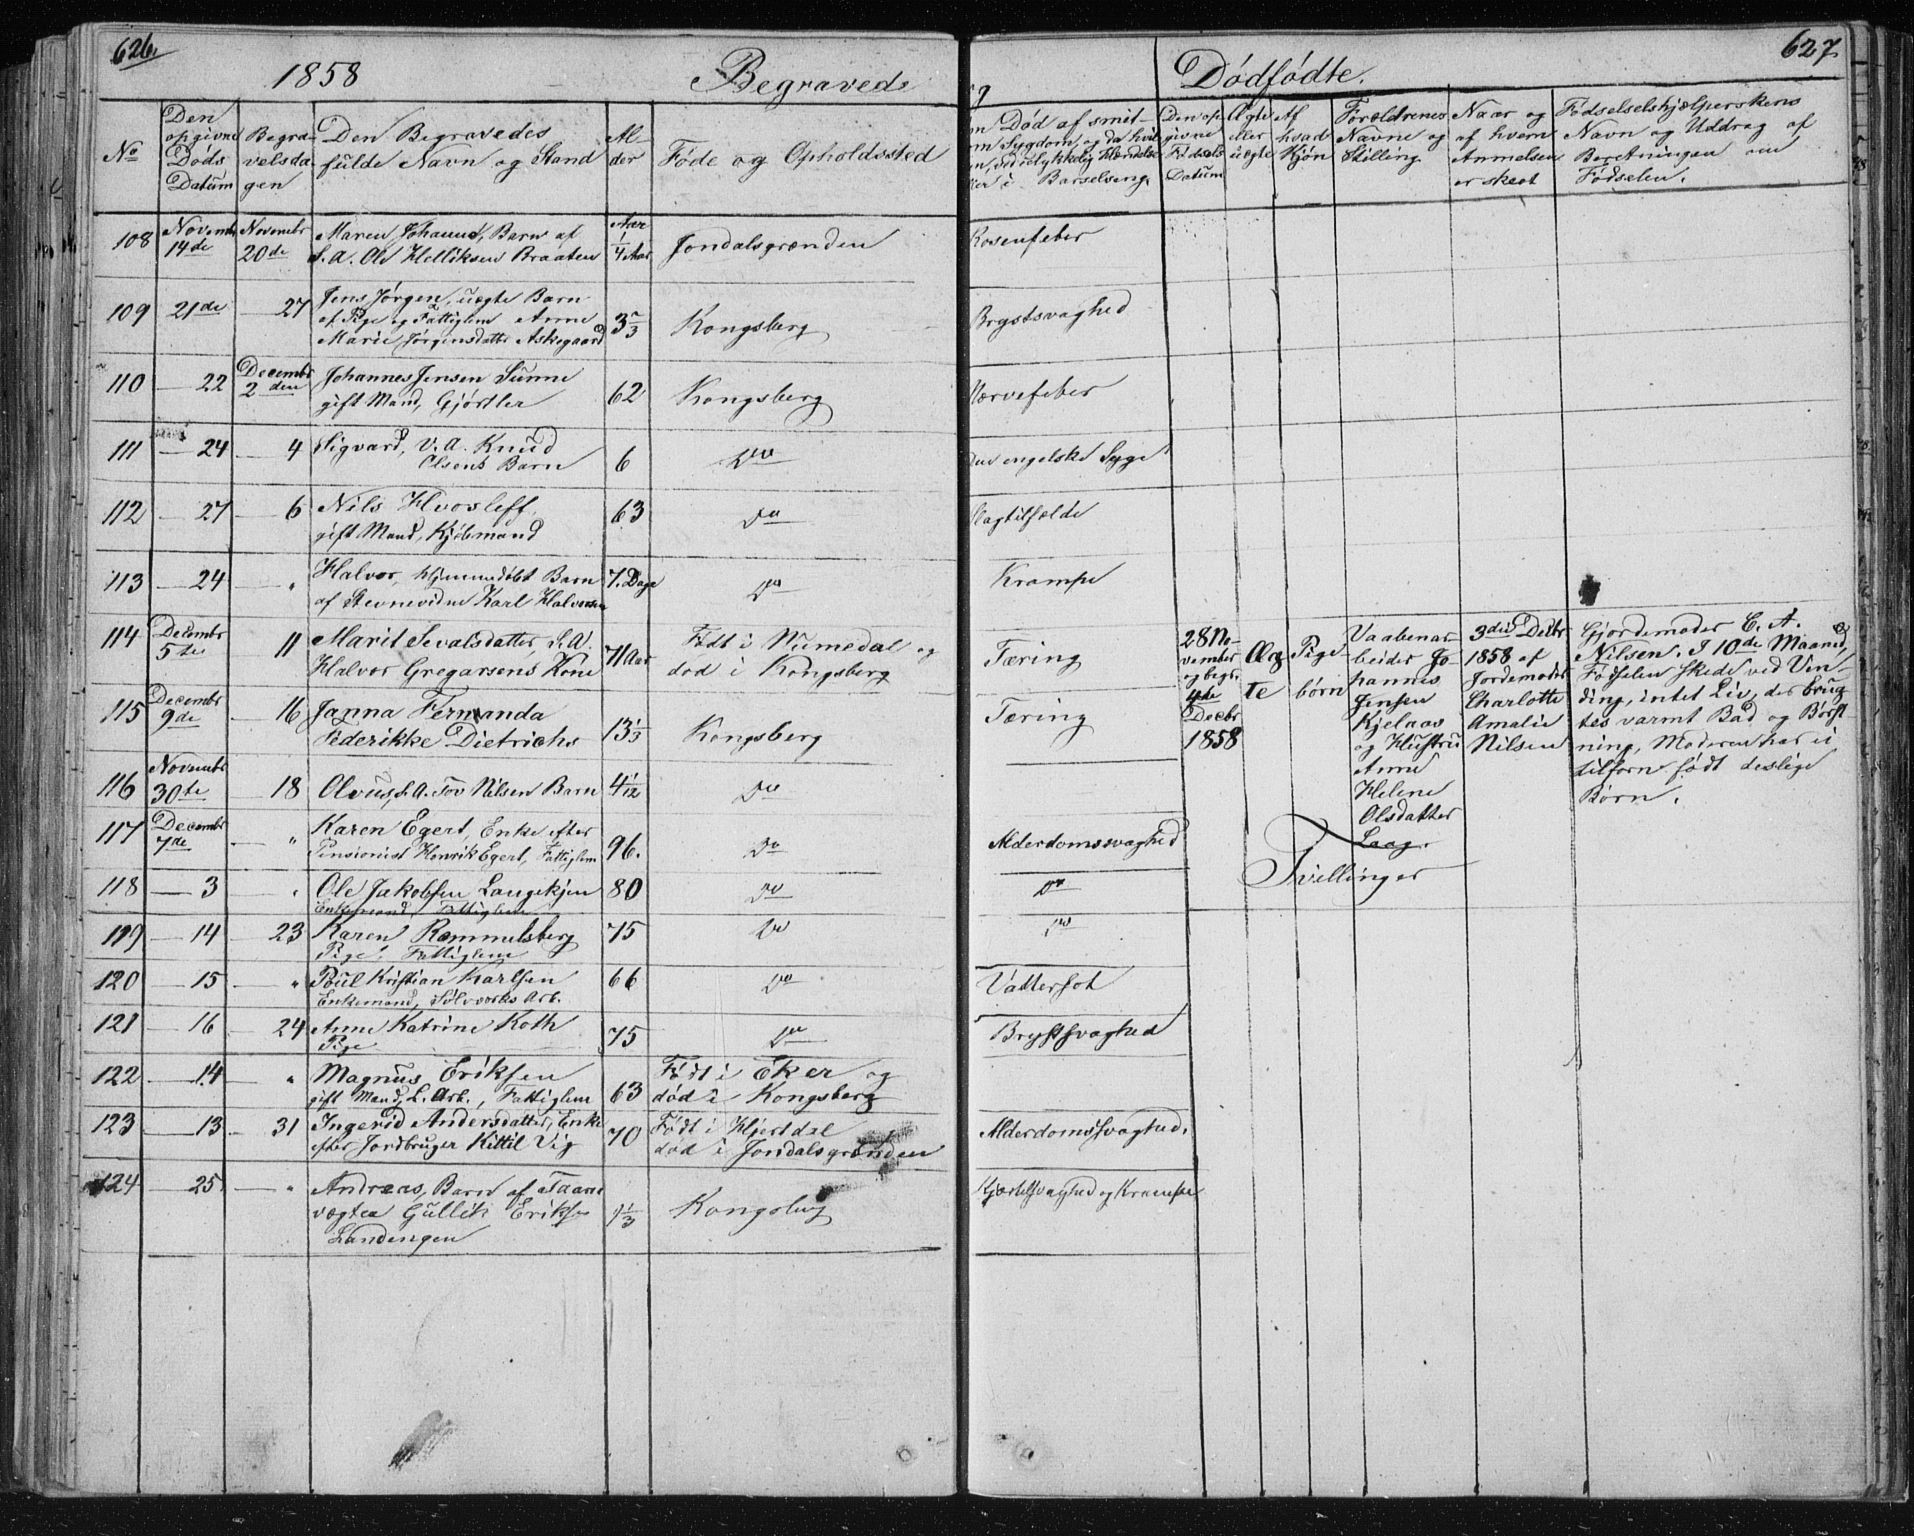 626.
1858 Begravede
No
Den opgivne Døds Datum
Begra-velsda gen
Den Begravedes fulde Navn og Stand
Al-der
Føde og Opholdssted
108 Novembr 14de Novembr 20de Maren Johanne, Barn af Aar
S. A. Ole Helliksen Braaten 1/4 Aar Jondalsgrænden
109 21de — 27 Jens Jørgen, uægte Barn
af Pige og Fattiglem Anne
Marie Jørgensdatter Askegaard 3 2/3 Kongsberg
110 — 22 Decembr 2den Johannes Jensen Sunne
gift Mand, Gjørtler 62 Kongsberg
111 — 24 — 4 Sigvard, V. A. Knud
Olsens Barn 6 Do
112 — 27 — 6 Nils Hvosleff,
gift Mand, Kjøbmand 63 Do
113 — 24 — " Halvor, hjemmedøbt Barn 7. Dage
af Stevnevidne Karl Halvorsen Do
114 Decembr 5te 11 Marit Sevalsdatter, S. A.
Halvor Gregarsens Kone 71 Aar Født i Numedal og
død i Kongsberg
115 Decembr 9de — 16 Janna Fernanda
Federikke Dietrichs 13 1/3 Kongsberg
116 Novembr 30te — 18 Olvus, S. A. Tov Nilsen Barn 4 1/12 Do
117 Decembr 7de — " Karen Egert, Enke efter
Pensionist Henrik Egert, Fattiglem 96. Do
118 — 3 " Ole Jakobsen Langekjen 80 Do
Enkemand, Fattiglem
119 — 14 — 23 Karen Rammelsberg 75 Do
Pige, Fattiglem
120 — 15 — " Poul Kristian Karlsen 66 Do
Enkemand, Sølvværks Arb.
121 — 16 — 24 Anne Katrine Koth 75 Do
Pige
122 — 14 — " Magnus Eriksen
gift Mand, L. Arb., Fattiglem 63 Født i Eker og
død i Kongsberg
123 — 13 — 31 Ingerid Andersdatter, Enke
efter Jordbruger Kittil Vig 70 Født i Hjertdal
død i Jondalsgrænden
124 — 25 — " Andreas, Barn af Taarn
vægter Gullik Eriks
Landengen 1 1/3 Kongsberg
627
Dødfødte.
Død af smit-
Sygdom, og da hvil
ulykkelig Hændelse
i Barselseng.
Den op-givne Fødsels Datum
Ægte eller uægte
Af hvad Kjøn
Forældrenes Navne og Stilling
Naar og af hvem Anmelsen er skeet
Fødselshjælperskens Navn og Uddrag af Beretningen om Fødselen.
Rosenfeber
Brystsvaghed
Nervefeber
Den engelske Syge
Slagtilfælde
Krampe
Tæring
Tæring
Alderdomssvaghed
Do
Do
Vattersot
Brystsvaghed
Alderdomssvaghed.
Kjertelsvaghed og Krampe
28 No-
vember
og begr.
4de
Decbr
1858
Æg-
te
Pige
børn
Vaabenar-
beider Jo-
hannes
Jensen
Kjelaas
og Hustru
Anne
Helene
Olsdatter
Laag.
3die Decbr
1858 af
Jordemoder
Charlotte
Amalie
Nilsen
Gjordemoder C. A.
Nilsen. I 10de Maaned,
Fødselen skede ved Ven-
ding, intet Liv, der brug
tes varmt Bad og Børst
ning, Moderen har ei
tilforn født deslige
Børn.
Tvillinger